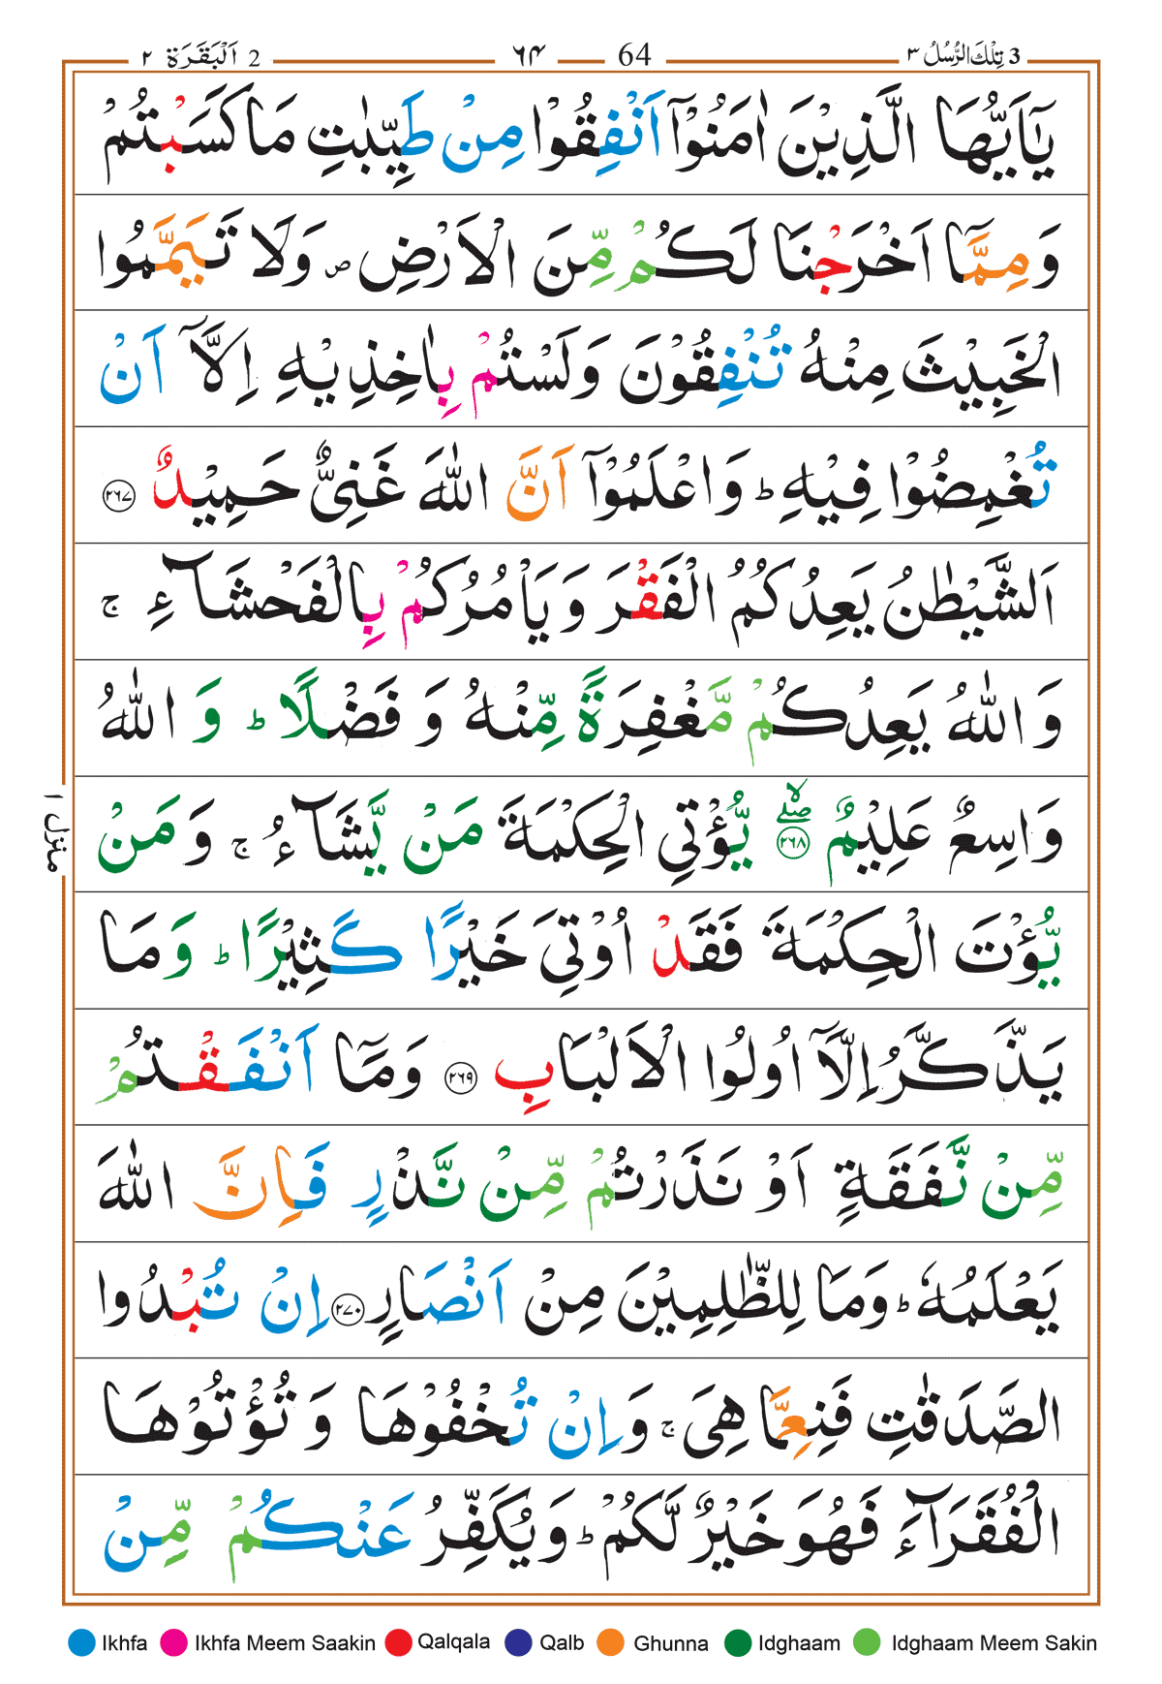 3 تِلْكَ الرُّسُلُ ٣ 64 ٦٤ 2 اَلْبَقَرَة ٢
يٰۤاَيُّهَا الَّذِيْنَ اٰمَنُوْۤا اَنْفِقُوْا مِنْ طَيِّبٰتِ مَا كَسَبْتُمْ
وَمِمَّاۤ اَخْرَجْنَا لَكُمْ مِّنَ الْاَرْضِ ص وَلَا تَيَمَّمُوا
الْخَبِيْثَ مِنْهُ تُنْفِقُوْنَ وَلَسْتُمْ بِاٰخِذِيْهِ اِلَّاۤ اَنْ
تُغْمِضُوْا فِيْهِ ؕ وَاعْلَمُوْۤا اَنَّ اللّٰهَ غَنِىٌّ حَمِيْدٌ ٢٦٧
اَلشَّيْطٰنُ يَعِدُكُمُ الْفَقْرَ وَيَاْمُرُكُمْ بِالْفَحْشَآءِ ج
وَاللّٰهُ يَعِدُكُمْ مَّغْفِرَةً مِّنْهُ وَفَضْلًا ؕ وَاللّٰهُ
وَاسِعٌ عَلِيْمٌ ۙ ٢٦٨ يُّؤْتِى الْحِكْمَةَ مَنْ يَّشَآءُ ج وَمَنْ
يُّؤْتَ الْحِكْمَةَ فَقَدْ اُوْتِىَ خَيْرًا كَثِيْرًا ؕ وَمَا
يَذَّكَّرُ اِلَّاۤ اُولُوا الْاَلْبَابِ ٢٦٩ وَمَاۤ اَنْفَقْتُمْ
مِّنْ نَّفَقَةٍ اَوْ نَذَرْتُمْ مِّنْ نَّذْرٍ فَاِنَّ اللّٰهَ
يَعْلَمُهٗ ؕ وَمَا لِلظّٰلِمِيْنَ مِنْ اَنْصَارٍ ٢٧٠ اِنْ تُبْدُوا
الصَّدَقٰتِ فَنِعِمَّا هِىَ ج وَاِنْ تُخْفُوْهَا وَتُؤْتُوْهَا
الْفُقَرَآءَ فَهُوَ خَيْرٌ لَّكُمْ ؕ وَيُكَفِّرُ عَنْكُمْ مِّنْ
منزل ١
Ikhfa Ikhfa Meem Saakin Qalqala Qalb Ghunna Idghaam Idghaam Meem Sakin